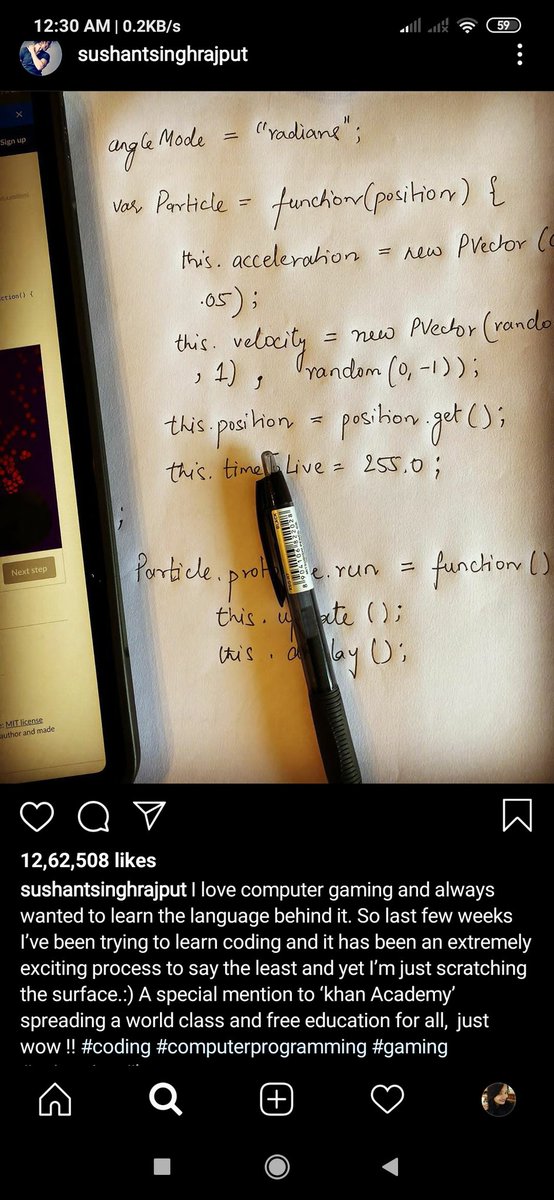 12:30 AM | 0.2KB/s
59
sushantsinghrajput
Sign up
angleMode = "radians";
var Particle = function(position) {
ction() {
this. acceleration = new PVector (
.05);
this. velocity = new PVector(rando
, 1), random(0,-1));
this.position = position.get();
this. time Live = 255.0 ;
;
Next step
Particle. run = function()
this. ();
this. ();
8904106822028
MIT license
author and made
12,62,508 likes
sushantsinghrajput I love computer gaming and always
wanted to learn the language behind it. So last few weeks
I've been trying to learn coding and it has been an extremely
exciting process to say the least and yet I'm just scratching
the surface.:) A special mention to 'khan Academy'
spreading a world class and free education for all, just
wow !! #coding #computerprogramming #gaming